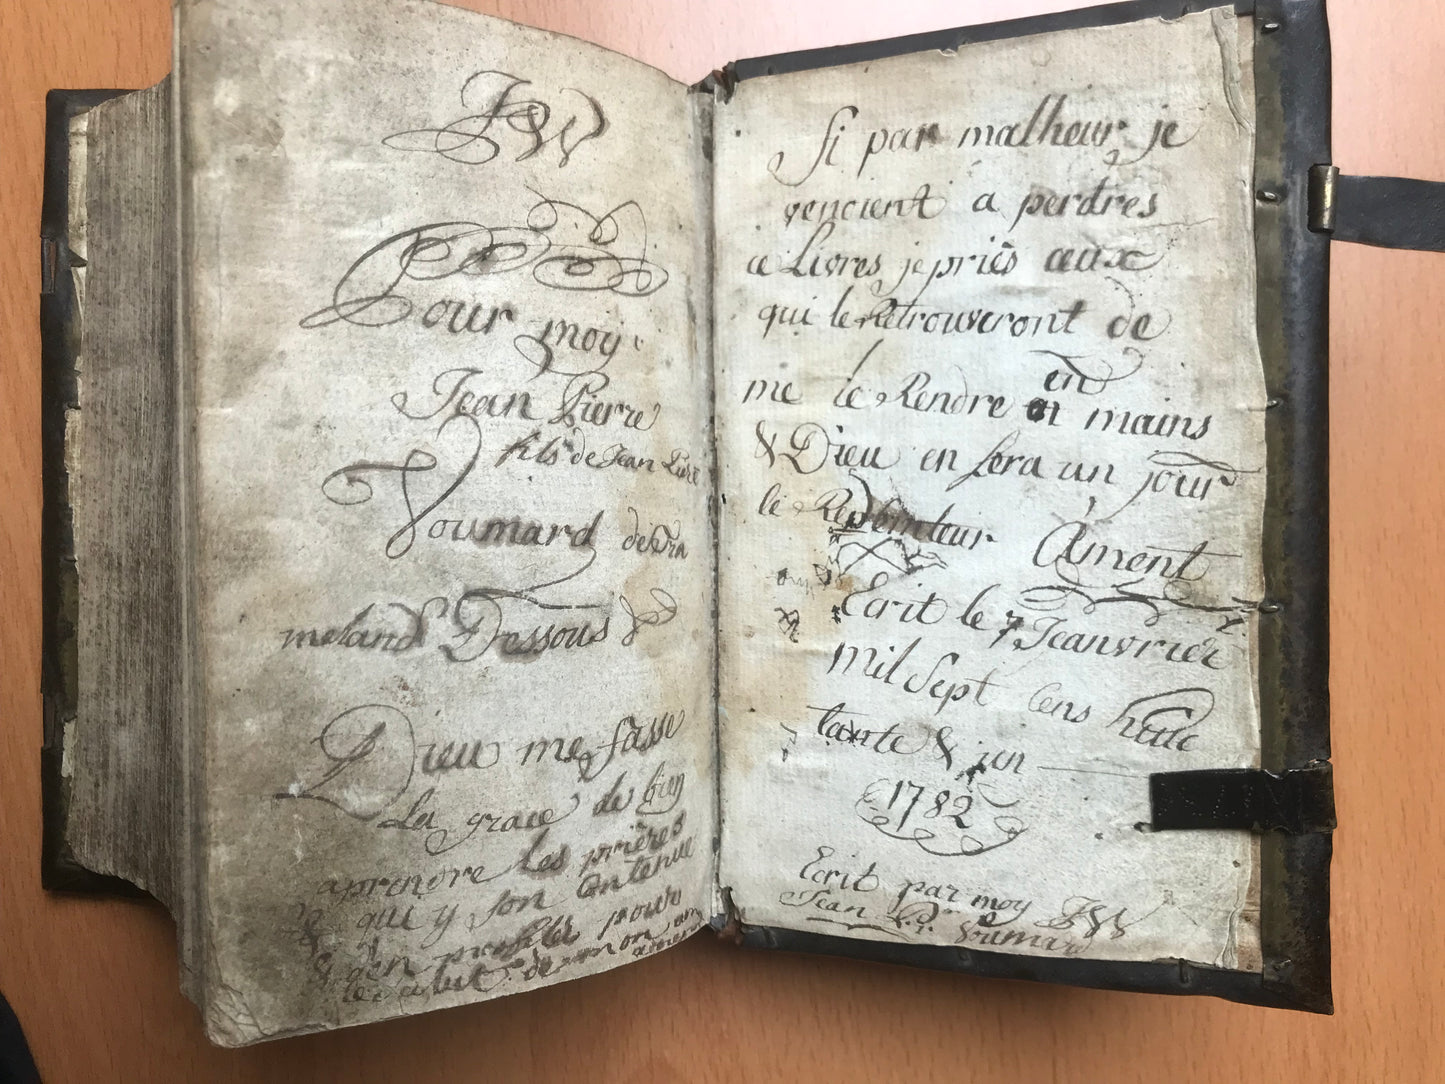 JW
Pour moy
Jean Pierre
fils de Jean Pierre
Voumard de tra
meland Dessous
Dieu me fasse
La grace de bien
aprendre les prières
& qui y son contenue
& d'en profiter pour
le salut de mon ame
amen
Si par malheur je
vencient a perdres
ce Livres je priès ceux
qui le Retrouveront de
me le Rendre en mains
& Dieu en sera un jour
le Ament
Ecrit le 7 Jeanvrier
mil Sept Cens huic
tante & un
1782
Ecrit par moy JW
Jean Voumard